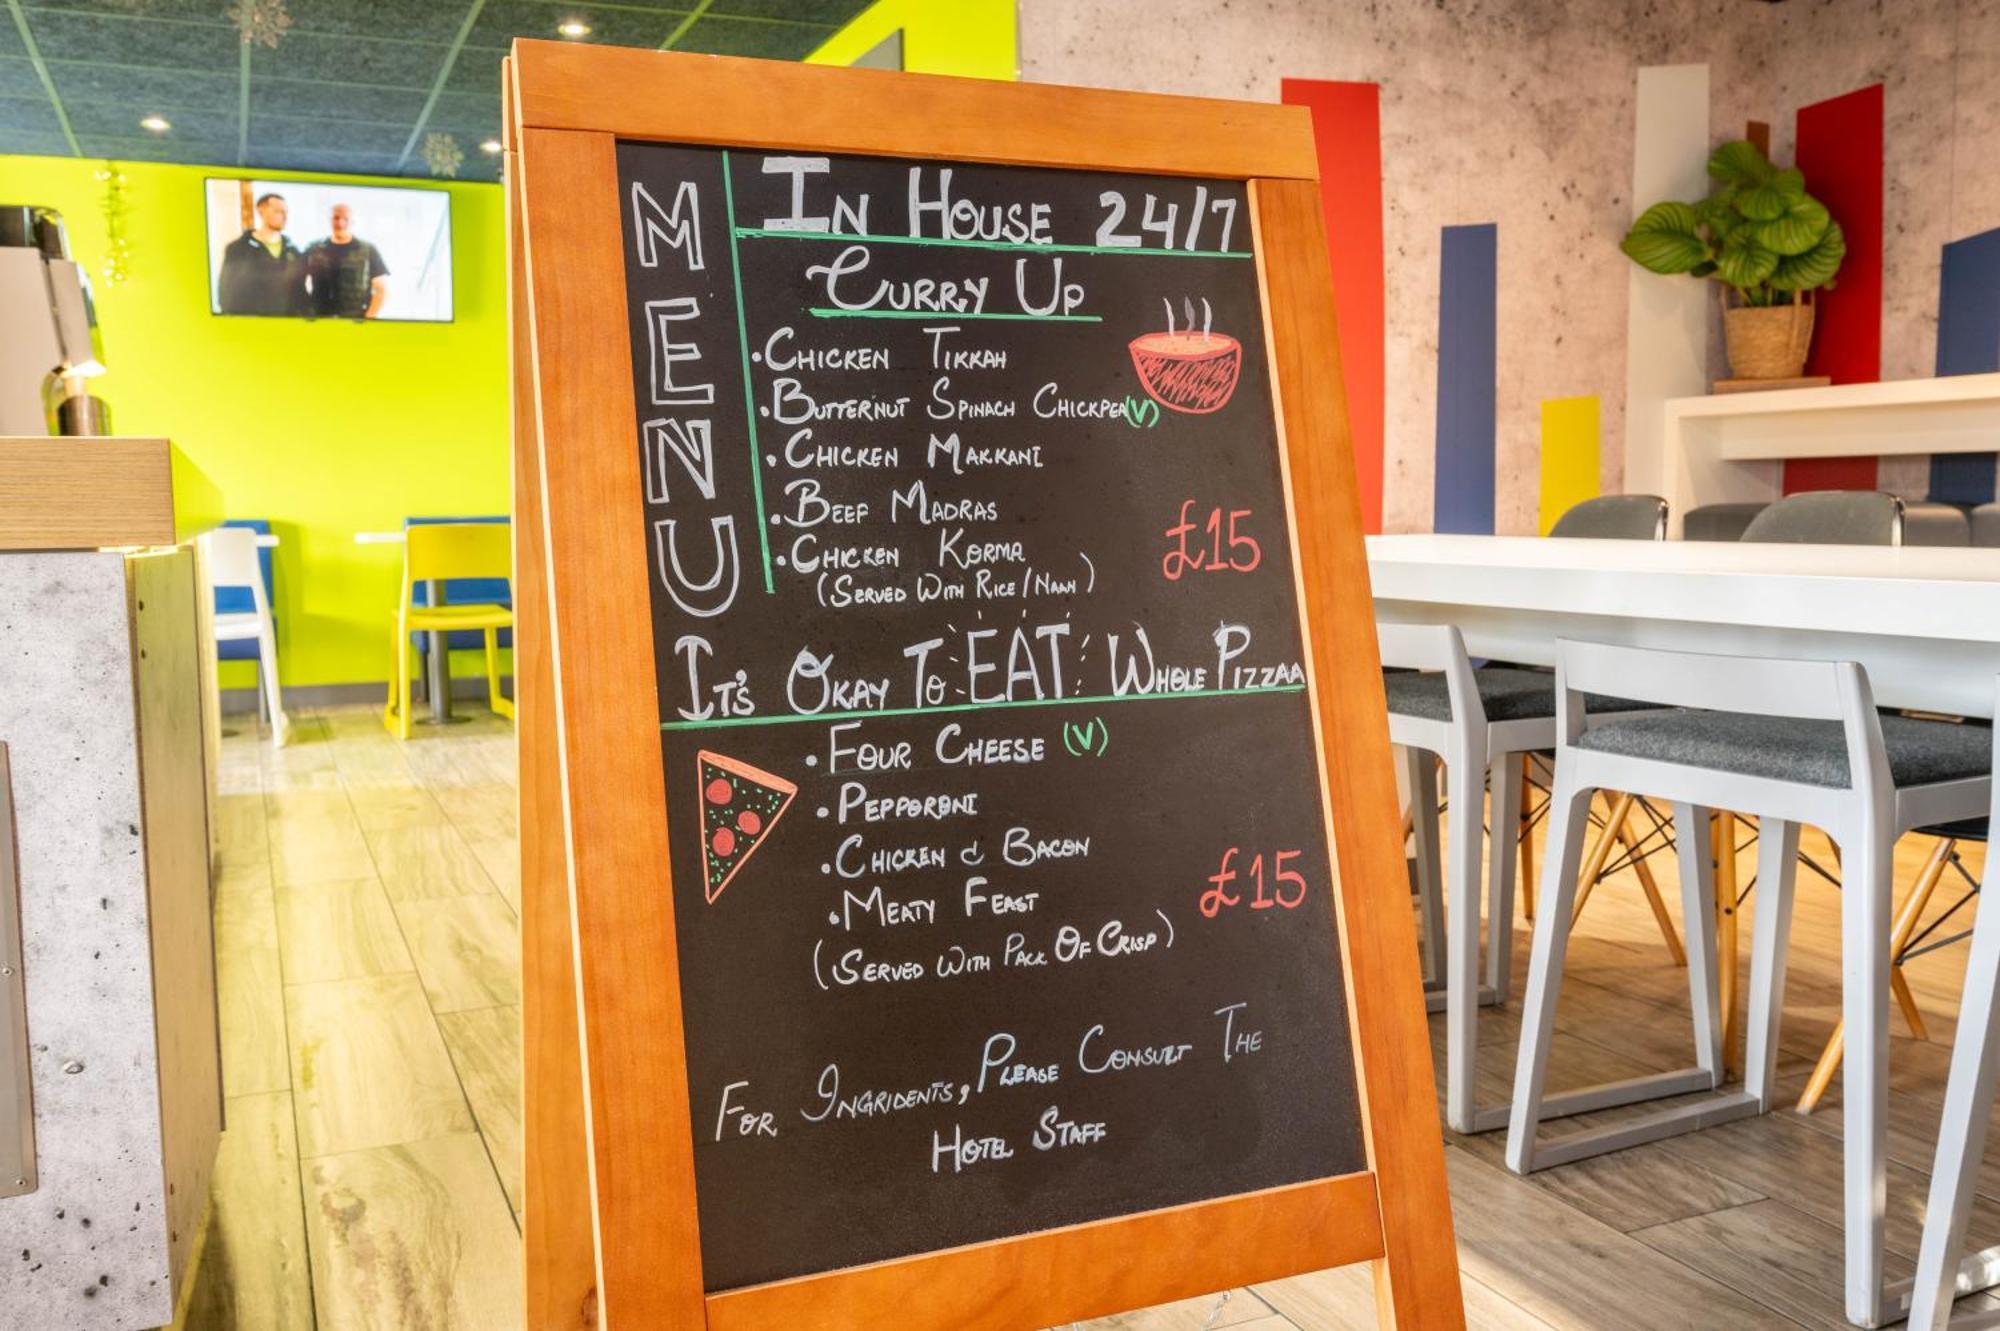 MENU
In House 24/7
Curry Up
• Chicken Tikkah
• Butternut Spinach Chickpea (V)
• Chicken Makkani
• Beef Madras
• Chicken Korma
(Served With Rice/Naan)
£15
It's Okay To EAT Whole Pizzaa
• Four Cheese (V)
• Pepporoni
• Chicken & Bacon
• Meaty Feast
£15
(Served With Pack Of Crisp)
For Ingridents, Please Consult The
Hotel Staff